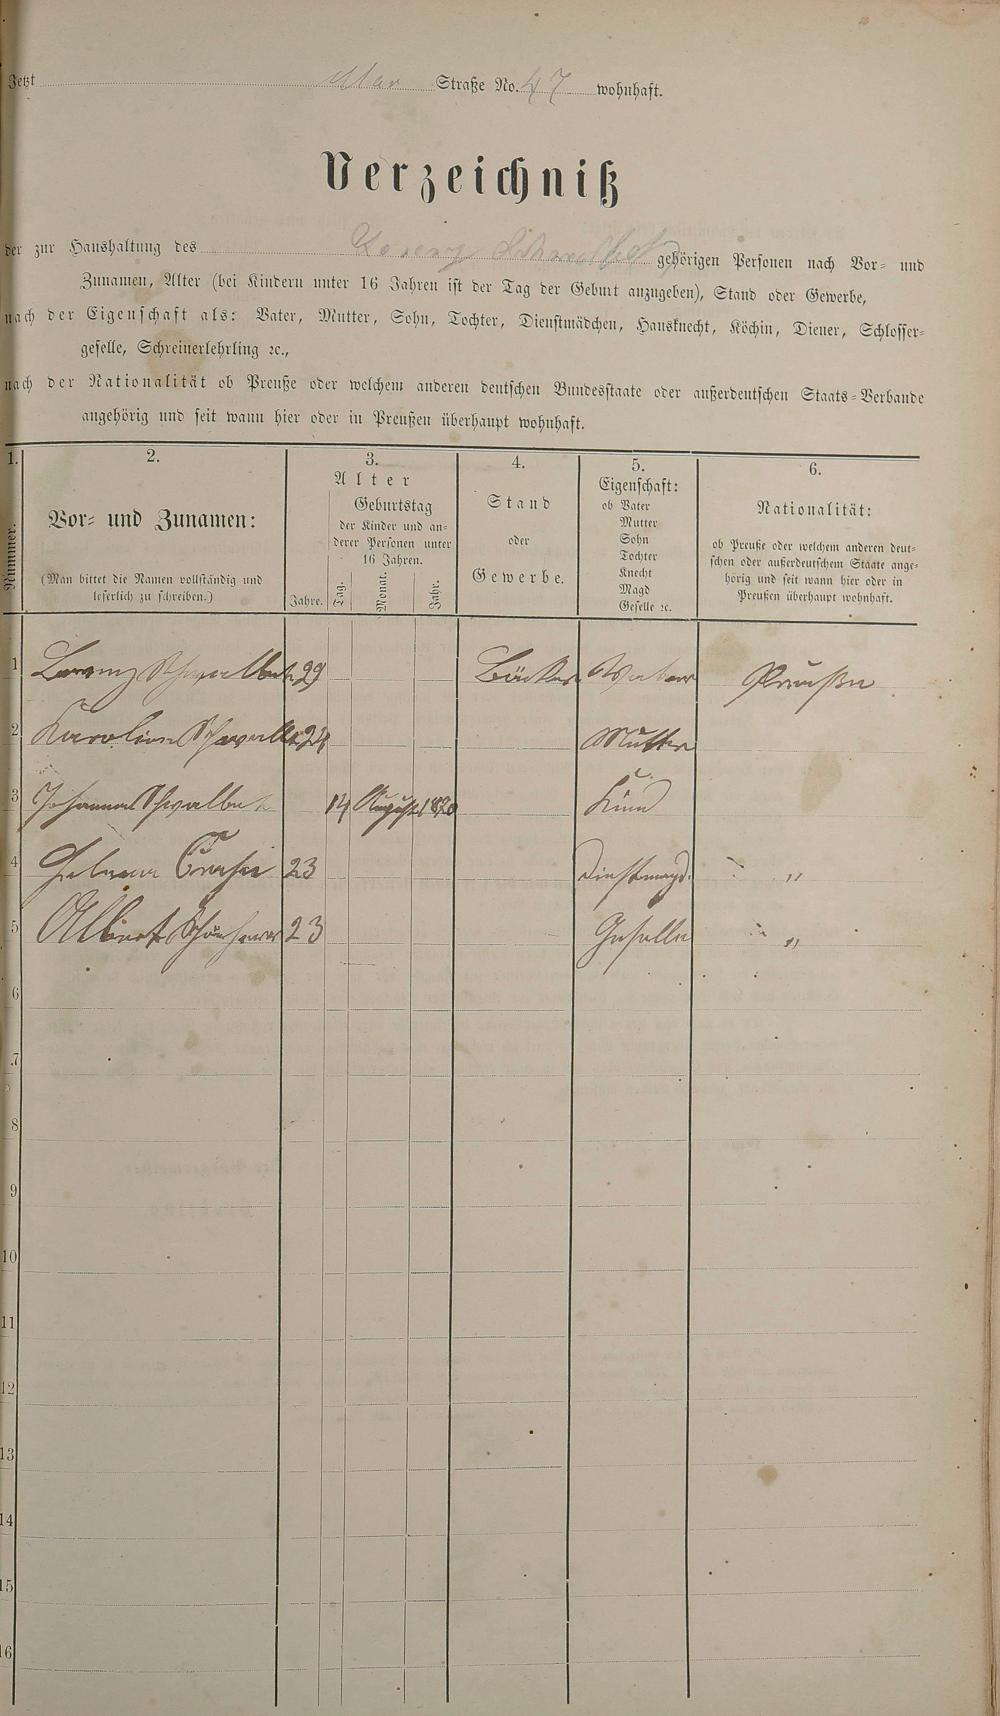 Jetzt Straße No. 47 wohnhaft.
Verzeichniß
der zur Haushaltung des Lorenz gehörigen Personen nach Vor- und
Zunamen, Alter (bei Kindern unter 16 Jahren ist der Tag der Geburt anzugeben), Stand oder Gewerbe,
nach der Eigenschaft als: Vater, Mutter, Sohn, Tochter, Dienstmädchen, Hausknecht, Köchin, Diener, Schlosser-
geselle, Schreinerlehrling ꝛc.,
nach der Nationalität ob Preuße oder welchem anderen deutschen Bundesstaate oder außerdeutschen Staats-Verbande
angehörig und seit wann hier oder in Preußen überhaupt wohnhaft.
1.
Nummer.
2.
Vor- und Zunamen:
(Man bittet die Namen vollständig und
leserlich zu schreiben.)
3.
Alter
Geburtstag
der Kinder und an-
derer Personen unter
16 Jahren.
Jahre.
Tag.
Monat.
Jahr.
4.
Stand
oder
Gewerbe.
5.
Eigenschaft:
ob Vater
Mutter
Sohn
Tochter
Knecht
Magd
Geselle ꝛc.
6.
Nationalität:
ob Preuße oder welchem anderen deut-
schen oder außerdeutschem Staate ange-
hörig und seit wann hier oder in
Preußen überhaupt wohnhaft.
1 Lorenz 29 Bäcker Vater Preuße
2 24 Mutter
3 Johanna 14 August Kind
4 23 Dienstmagd. "
5 Albert 23 Geselle "
6
7
8
9
10
11
12
13
14
15
16